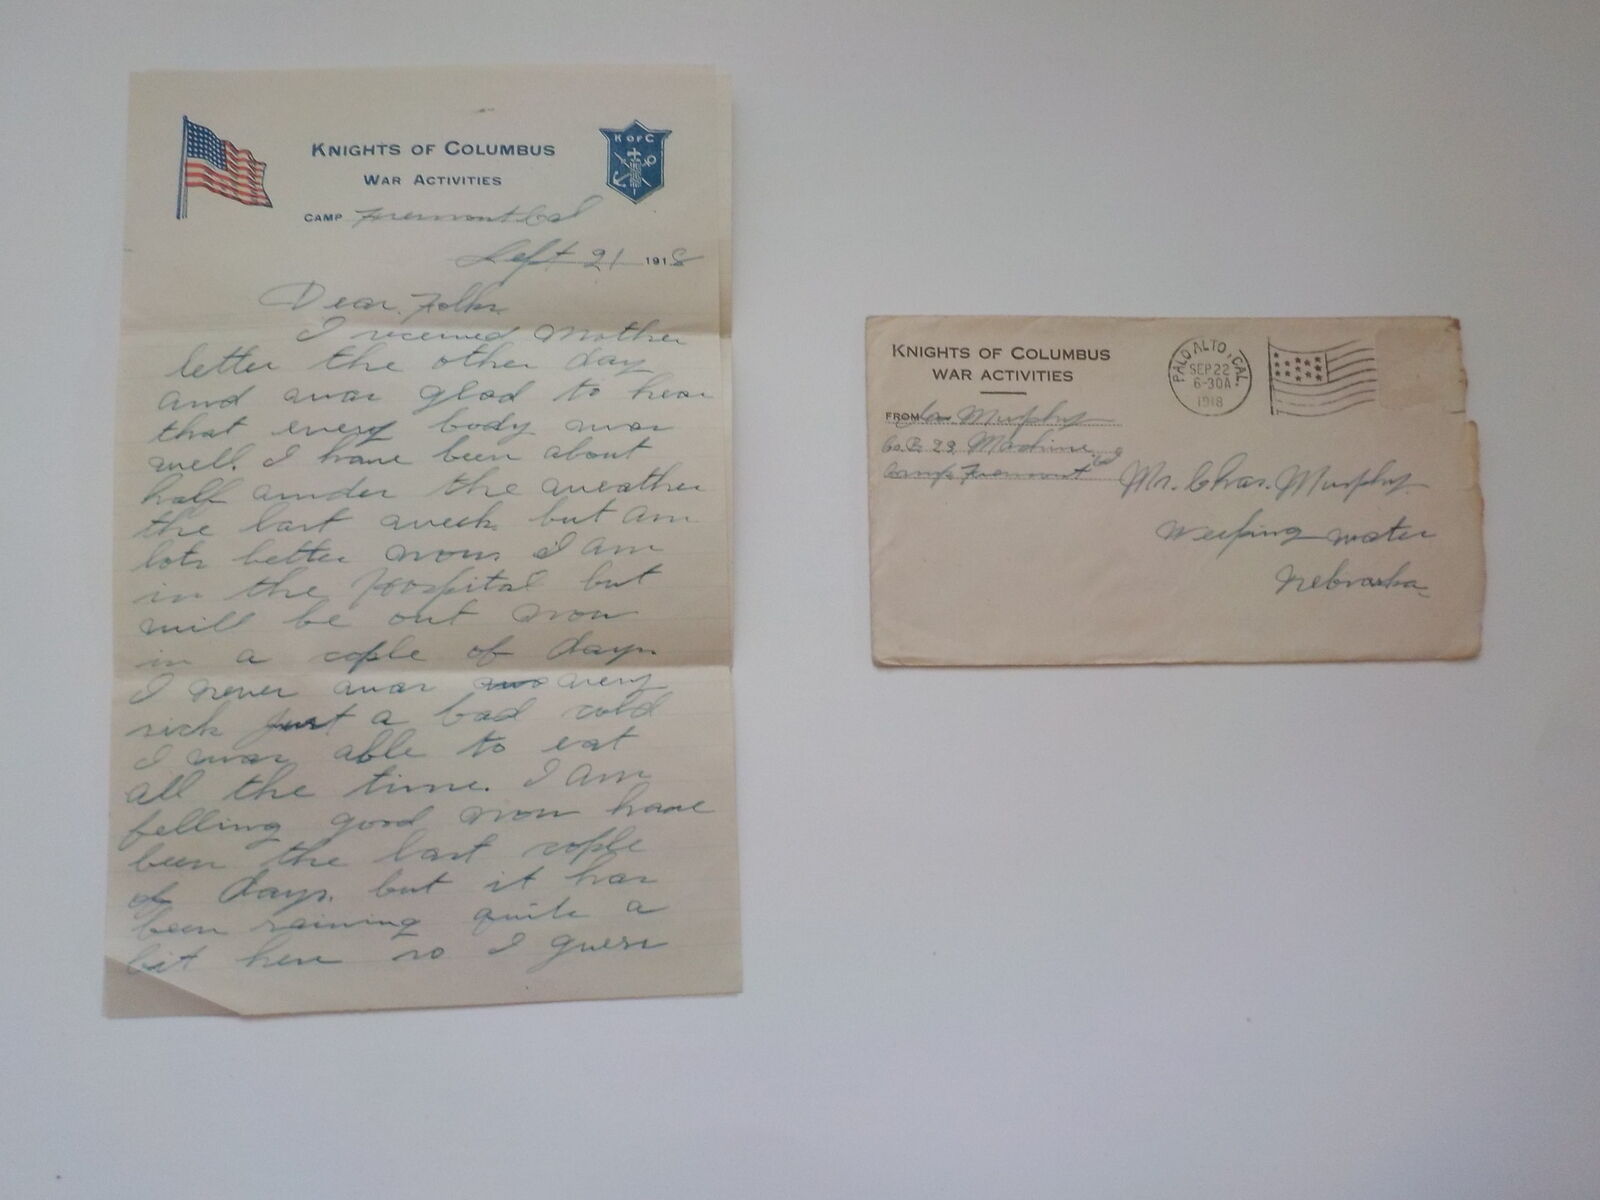 KNIGHTS OF COLUMBUS
WAR ACTIVITIES
K OF C
CAMP Fremont Cal
Sept 21 1918
Dear Folks
I received Mother
letter the other day
and was glad to hear
that every body was
well. I have been about
half under the weather
the last week but am
lots better now. I am
in the Hospital but
will be out now
in a cople of days.
I never was very
sick just a bad cold
I was able to eat
all the time. I am
felling good now have
been the last cople
of days. but it has
been raining quite a
bit here so I guess
KNIGHTS OF COLUMBUS
WAR ACTIVITIES
FROM Murphy
Co. B. 23 Machine
Camp Fremont Cal
PALO ALTO, CAL.
SEP 22
6-30A
1918
Mr. Chas. Murphy
Weeping water
Nebraska